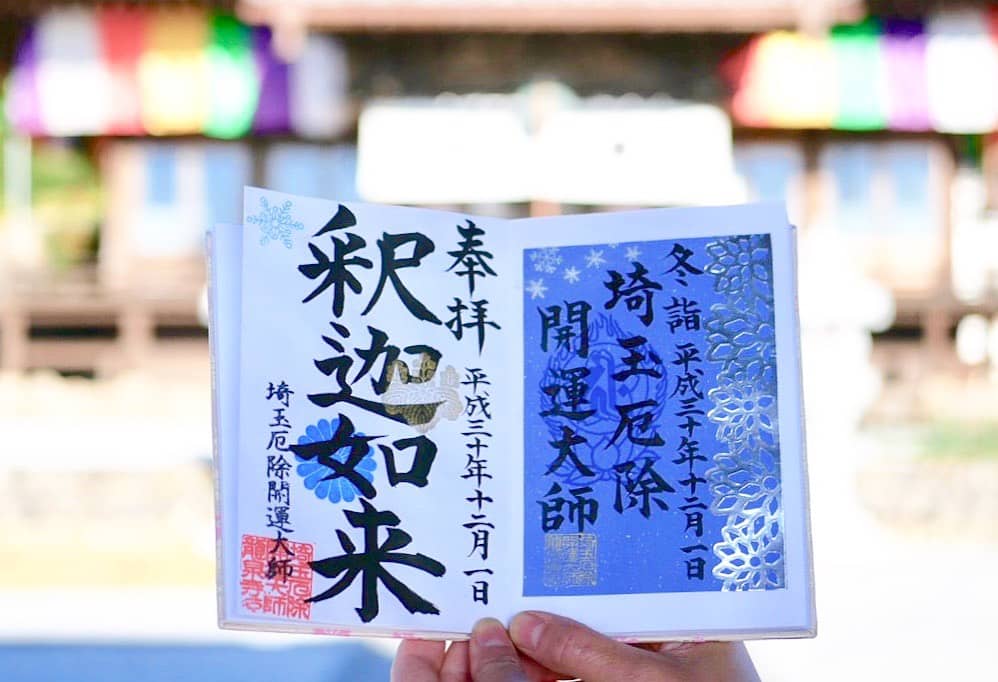 冬詣 平成三十年十二月一日
埼玉厄除
開運大師
奉拝 平成三十年十二月一日
釈迦如来
埼玉厄除開運大師